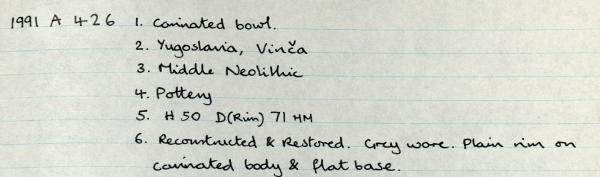 1991 A 426 1. Carinated bowl.
2. Yugoslavia, Vinča
3. Middle Neolithic
4. Pottery
5. H 50 D(Rim) 71 MM
6. Reconstructed & Restored. Grey ware. Plain rim on
carinated body & flat base.